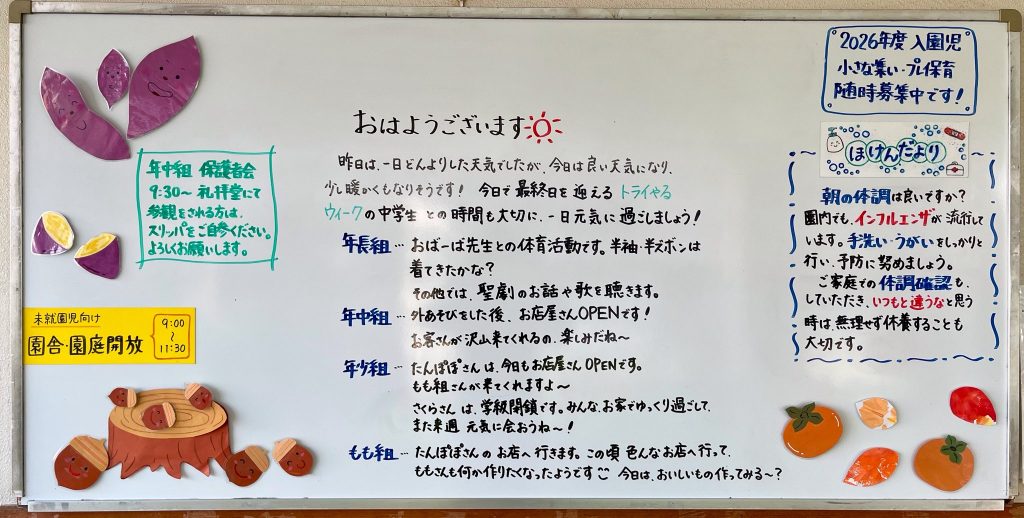 おはようございます
昨日は、一日どんよりした天気でしたが、今日は良い天気になり、
少し暖かくもなりそうです！ 今日で最終日を迎える トライやる
ウィークの中学生 との時間も大切に、一日元気に過ごしましょう！
年長組… おばーば先生との体育活動です。半袖・半ズボンは
着てきたかな？
その他では、聖劇のお話や歌を聴きます。
年中組… 外あそびをした後、お店屋さんOPENです！
お客さんが沢山来てくれるの、楽しみだね～
年少組… たんぽぽさんは、今日もお店屋さんOPENです。
もも組さんが来てくれますよ～
さくらさん は、学級閉鎖です。みんな、お家でゆっくり過ごして、
また来週 元気に会おうね～！
もも組… たんぽぽさんの お店へ 行きます。この頃 色んなお店へ行って、
ももさんも何か作りたくなったようです 今日は、おいしいもの作ってみる～？
年中組 保護者会
9:30～ 礼拝堂にて
参観をされる方は、
スリッパをご持参ください。
よろしくお願いします。
未就園児向け
園舎・園庭開放
9:00
～
11:30
2026年度 入園児
小さな集い・プレ保育
随時募集中です！
ほけんだより
朝の体調は良いですか？
園内でも、インフルエンザが流行して
います。手洗い・うがいをしっかりと
行い、予防に努めましょう。
ご家庭での体調確認も、
していただき、いつもと違うなと思う
時は、無理せず休養することも
大切です。